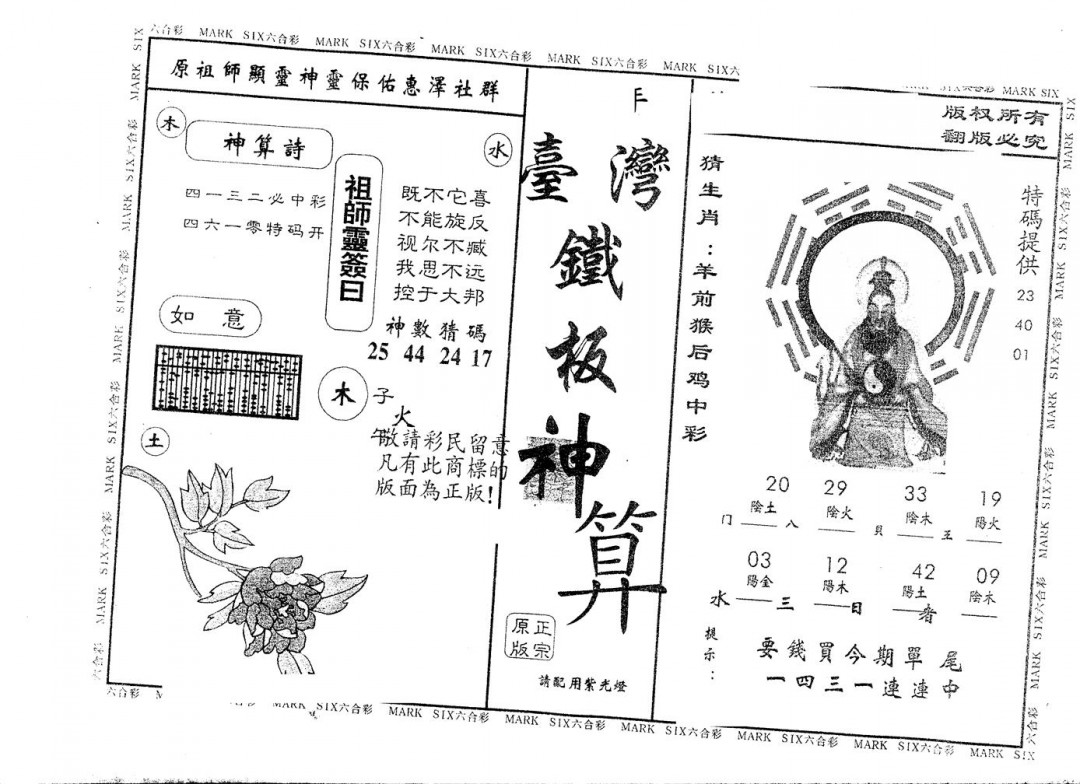 六合彩 MARK SIX六合彩 MARK SIX六合彩 MARK SIX六合彩 MARK SIX六合彩 MARK SIX六
原祖師顯靈神靈保佑惠澤社群
木
神算詩
四一三二必中彩
四六一零特码开
水
祖師靈簽曰
既不它喜
不能旋反
视尔不臧
我思不远
控于大邦
神數猜碼
25 44 24 17
如意
木
子
火
午
敬請彩民留意
凡有此商標的
版面為正版!
土
臺灣
鐵板神算
正宗
原版
請配用紫光燈
MARK SIX
版权所有
翻版必究
猜生肖:羊前猴后鸡中彩
特碼提供
23
40
01
20 29 33 19
陰土 陰火 陰木 陽火
门 八 貝 五
03 12 42 09
陽金 陽木 陽土 陰木
水 三 日 者
提示:
要錢買今期單尾
一四三一連連中
六合彩
MARK SIX六合彩 MARK SIX六合彩 MARK SIX六合彩 MARK SIX六合彩 MARK SIX六合彩 MARK SIX六合彩 MARK SIX